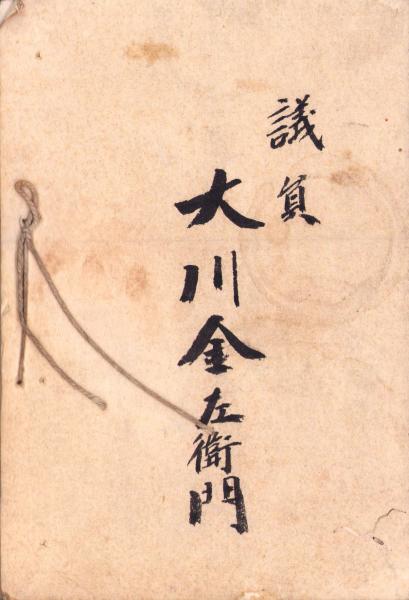 議員
大川金左衛門